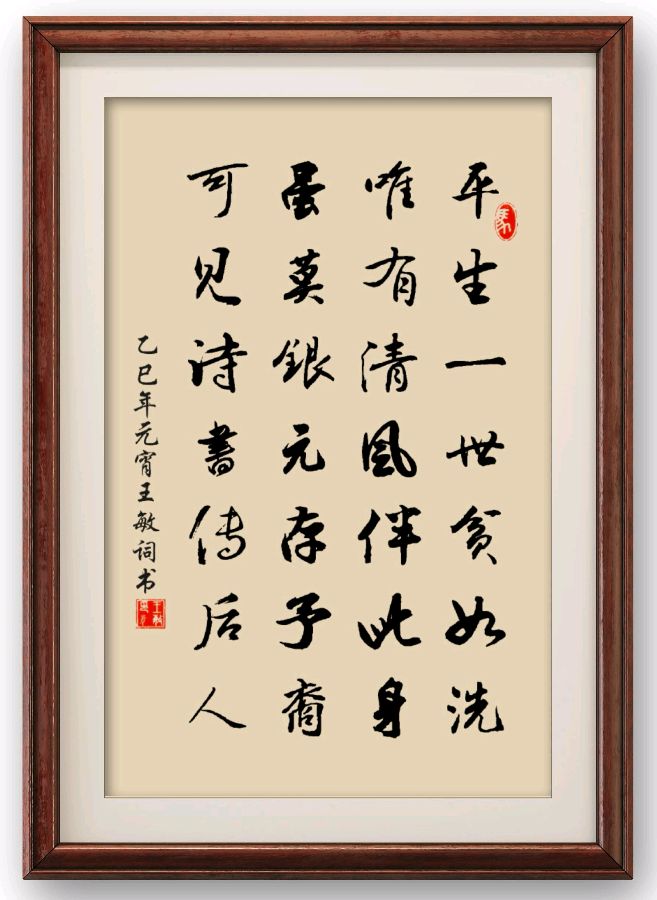 平生一世贫如洗
唯有清風伴此身
虽莫銀元存予裔
可见诗書传后人
乙巳年元宵王敏词书